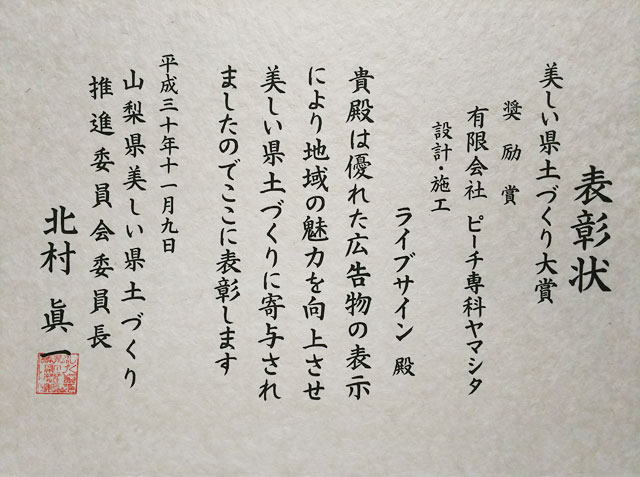 表彰状
美しい県土づくり大賞
奨励賞
有限会社 ピーチ専科ヤマシタ
設計・施工
ライブサイン 殿
貴殿は優れた広告物の表示
により地域の魅力を向上させ
美しい県土づくりに寄与され
ましたのでここに表彰します
平成三十年十一月九日
山梨県美しい県土づくり
推進委員会委員長
北村 眞一